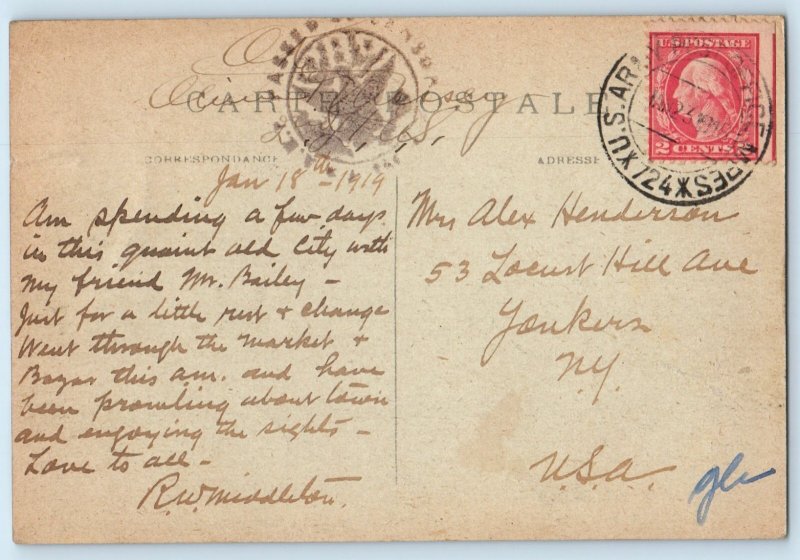 PASSED
CARTE POSTALE
CORRESPONDANCE
ADRESSE
U.S. POSTAGE
2 CENTS 2
U.S. ARMY
M.P.E.S.
724
Jan 18th - 1919
Am spending a few days
in this quaint old City with
my friend Mr. Bailey -
Just for a little rest + change
Went through the market +
Bazar this a.m. and have
been prowling about town
and enjoying the sights -
Love to all -
R.W. Middleton.
Mrs Alex Henderson
53 Locust Hill Ave
Yonkers
N.Y.
U.S.A.